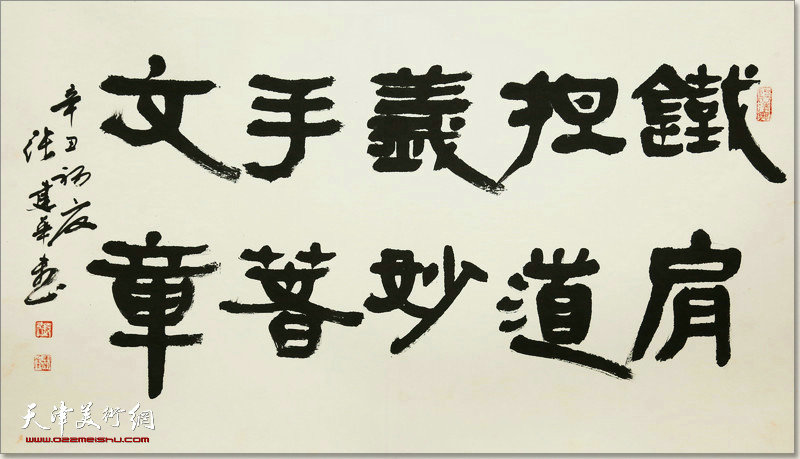 鐵肩
担道
義妙
手著
文章
辛丑初夏
張建華書
天津美術網
www.022meishu.com